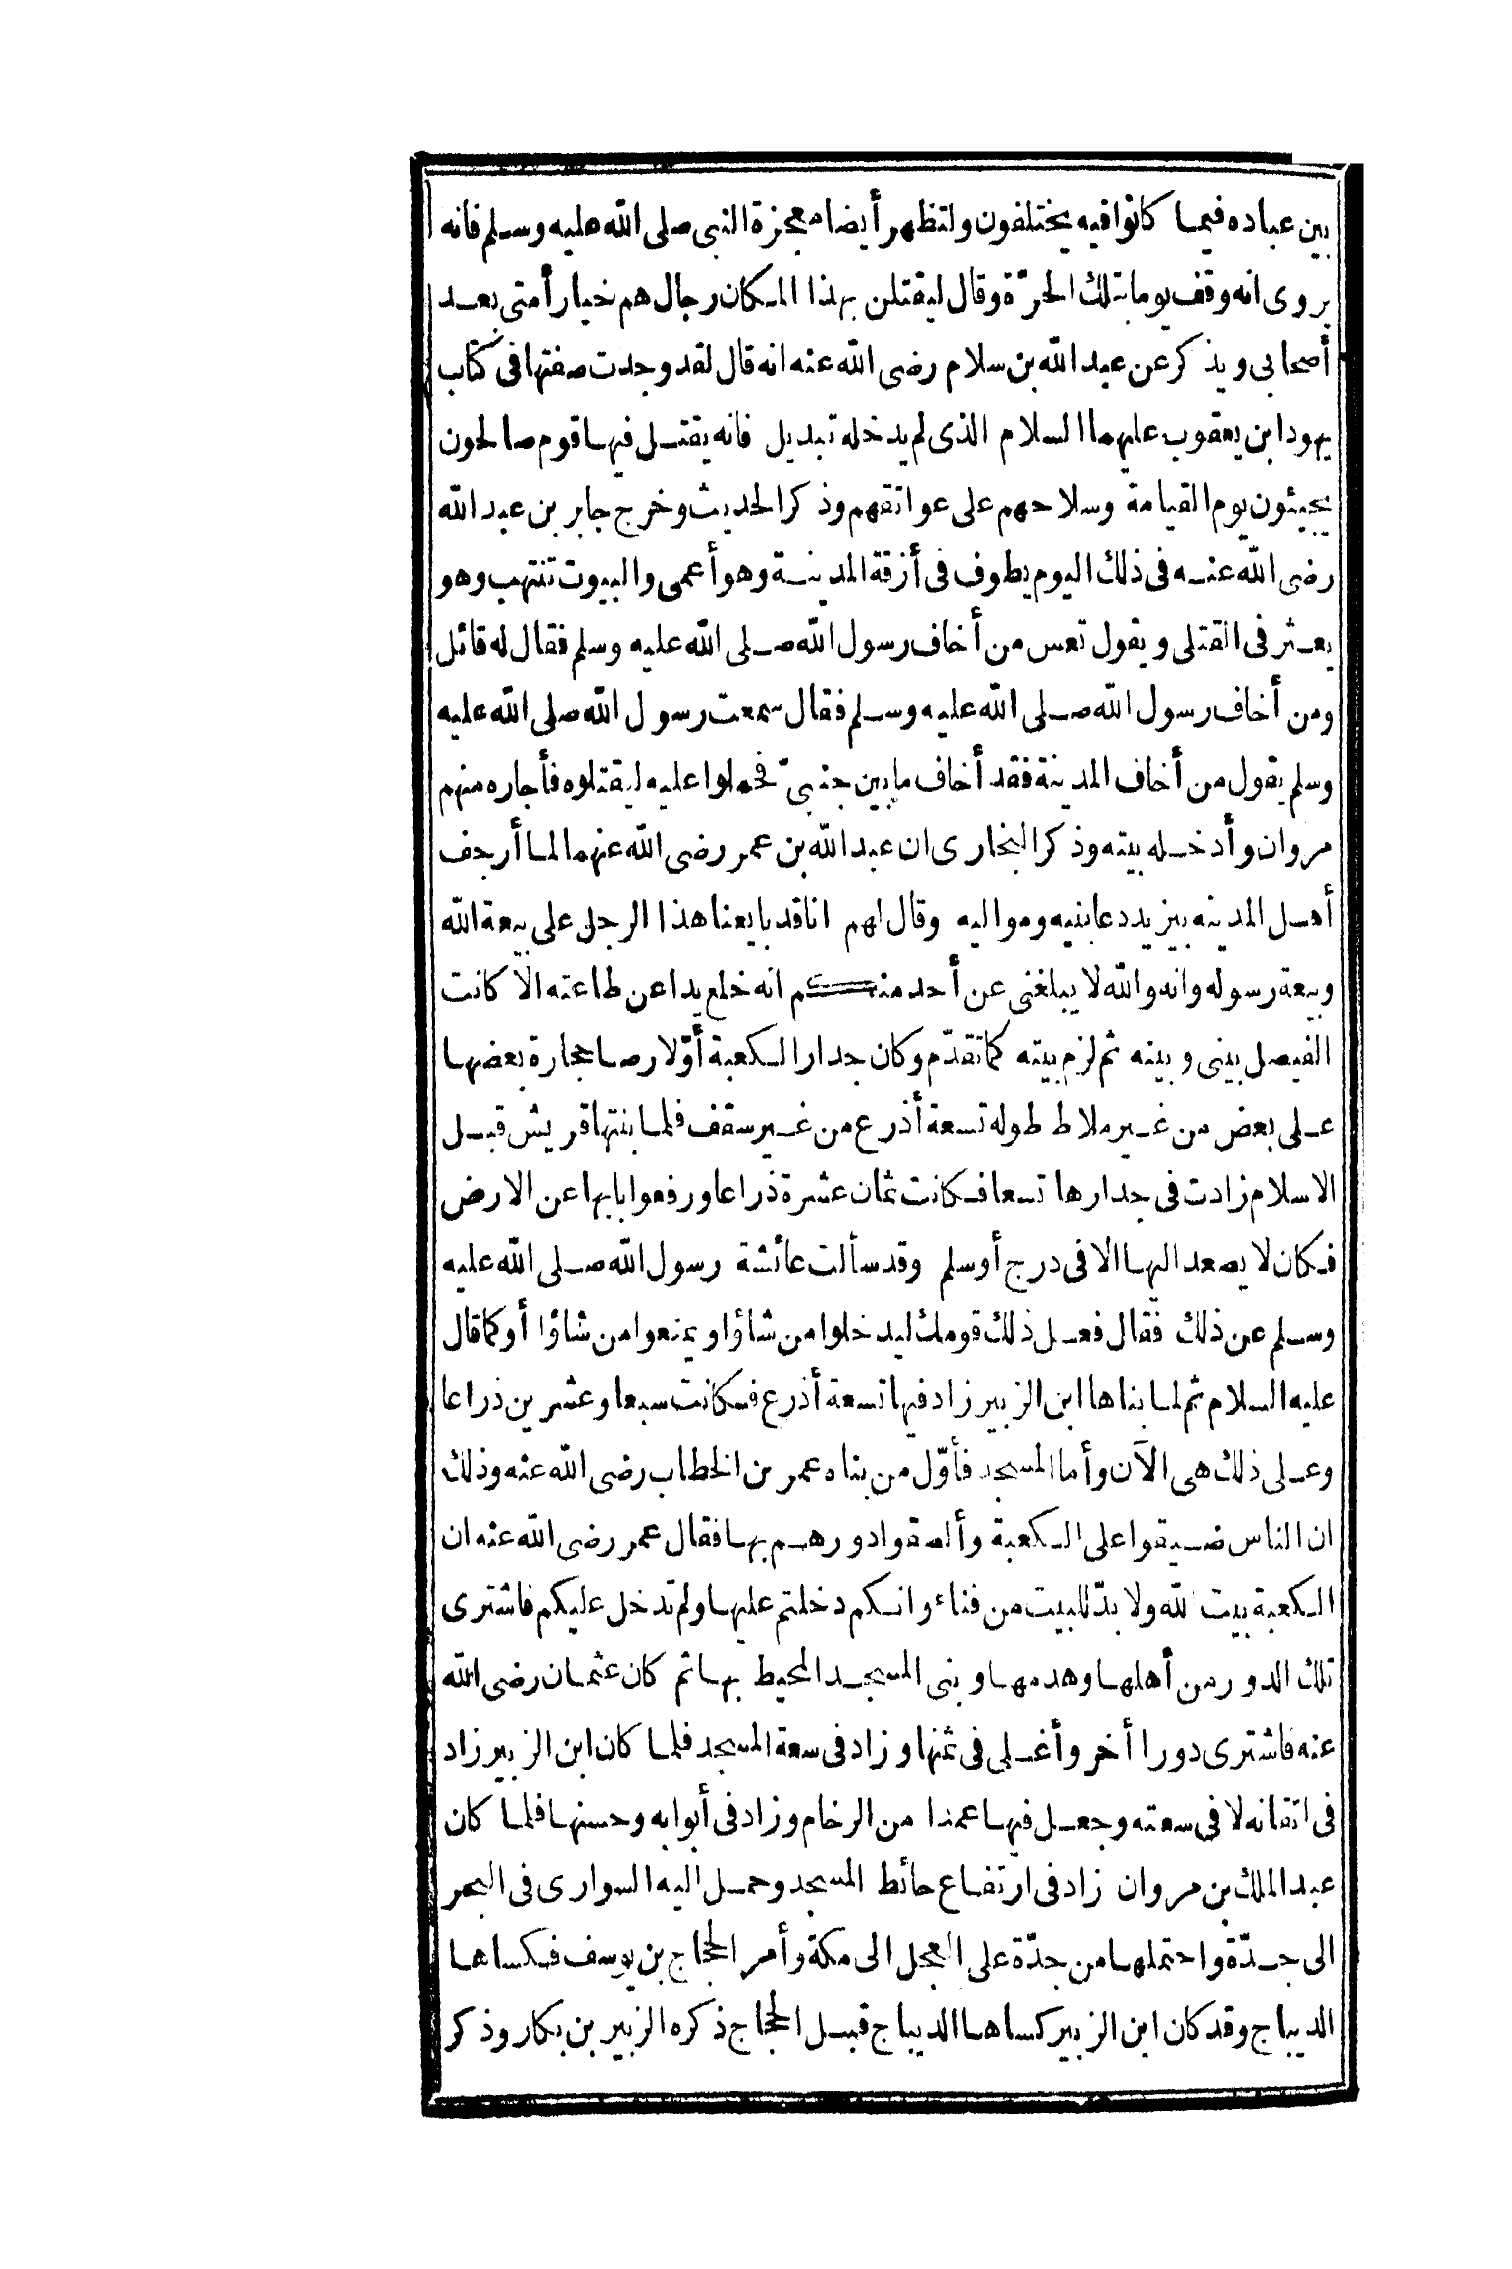 بين عباده فيما كانوا فيه يختلفون ولتظهر أيضا معجزة النبي صلى الله عليه وسلم فانه
يروى انه وقف يوما بتلك الحرّة وقال ليقتلن بهذا المكان رجال هم خيار أمتى بعد
أصحابى ويذكر عن عبد الله بن سلام رضى الله عنه انه قال لقد وجدت صفتها فى كتاب
يهودا بن يعقوب عليهما السلام الذى لم يدخله تبديل فانه يقتل فيها قوم صالحون
يجيئون يوم القيامة وسلاحهم على عواتقهم وذكر الحديث وخرج جابر بن عبد الله
رضى الله عنه فى ذلك اليوم يطوف فى أزقة المدينة وهو أعمى والبيوت تنتهب وهو
يعثر فى القتلى ويقول تعس من أخاف رسول الله صلى الله عليه وسلم فقال له قائل
ومن أخاف رسول الله صلى الله عليه وسلم فقال سمعت رسول الله صلى الله عليه
وسلم يقول من أخاف المدينة فقد أخاف ما بين جنبىّ فحملوا عليه ليقتلوه فأجاره منهم
مروان وأدخله بيته وذكر البخارى ان عبد الله بن عمر رضى الله عنهما لما أرجف
أهل المدينه بيزيد دعا بنيه ومواليه وقال لهم انا قد بايعنا هذا الرجل على بيعة الله
وبيعة رسوله وانه والله لا يبلغنى عن أحد منكم انه خلع يدا عن طاعته الا كانت
الفيصل بينى وبينه ثم لزم بيته كما تقدّم وكان جدار الكعبة أوّلا رصا حجارة بعضها
على بعض من غير ملاط طوله تسعة أذرع من غير سقف فلما بنتها قريش قبل
الاسلام زادت فى جدارها تسعا فكانت ثمان عشرة ذراعا ورفعوا بابها عن الارض
فكان لا يصعد اليها الا فى درج أو سلم وقد سألت عائشة رسول الله صلى الله عليه
وسلم عن ذلك فقال فعل ذلك قومك ليدخلوا من شاؤا ويمنعوا من شاؤا أو كما قال
عليه السلام ثم لما بناها ابن الزبير زاد فيها تسعة أذرع فكانت سبعا وعشرين ذراعا
وعلى ذلك هى الآن وأما المسجد فأوّل من بناه عمر بن الخطاب رضى الله عنه وذلك
ان الناس ضيقوا على الكعبة وألصقوا دورهم بها فقال عمر رضى الله عنه ان
الكعبة بيت لله ولا بدّ للبيت من فناء وانكم دخلتم عليها ولم تدخل عليكم فاشترى
تلك الدور من أهلها وهدمها وبنى المسجد المحيط بها ثم كان عثمان رضى الله
عنه فاشترى دورا أخر وأغلى فى ثمنها وزاد فى سعة المسجد فلما كان ابن الزبير زاد
فى اتقانه لا فى سعته وجعل فيها عمدا من الرخام وزاد فى أبوابه وحسنها فلما كان
عبد الملك بن مروان زاد فى ارتفاع حائط المسجد وحمل اليه السوارى فى البحر
الى جدّة واحتملها من جدّة على العجل الى مكة وأمر الحجاج بن يوسف فكساها
الديباج وقد كان ابن الزبير كساها الديباج قبل الحجاج ذكره الزبير بن بكار وذكر